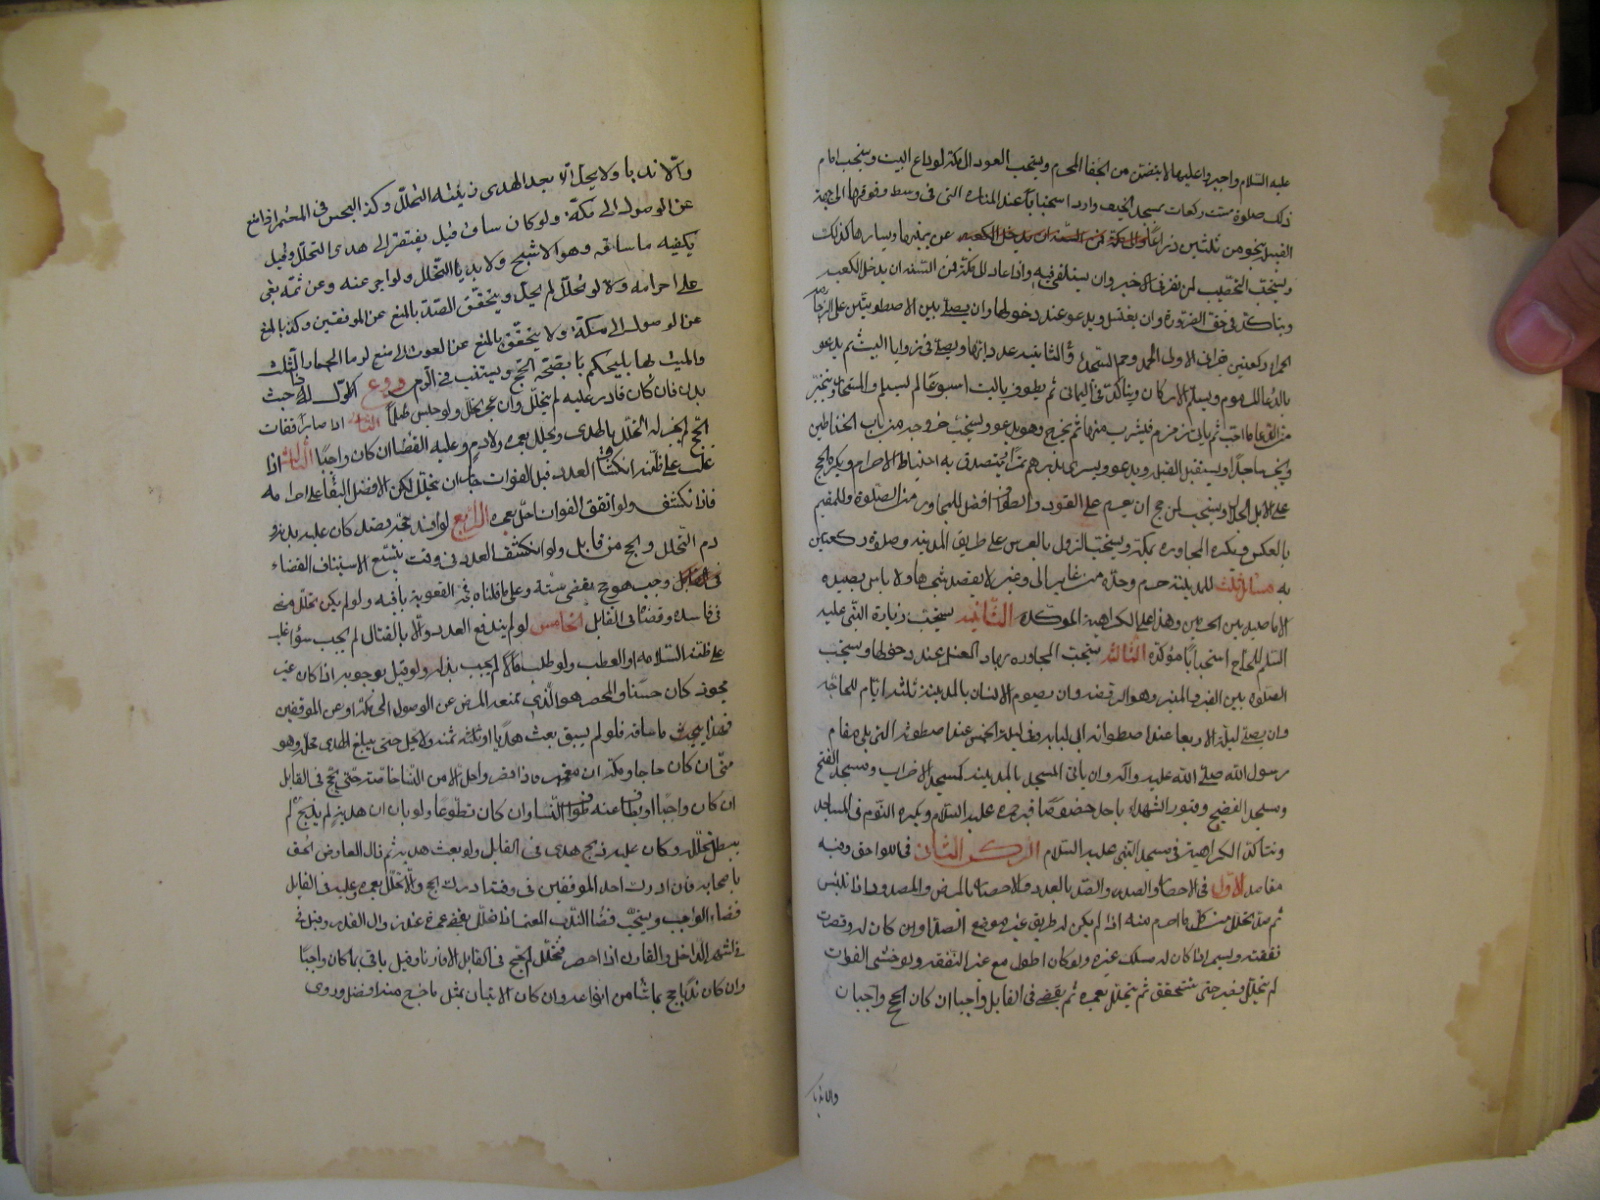 عليه السلام واجبروا عليها لا يتضمن من الجفا المحرم ويستحب العود الى مكة لوداع البيت ويستحب امام
ذلك صلوة ست ركعات بمسجد الخيف وادا استحبابا عند المنارة التى فى وسطه وفوقها الى جهة
القبلة بنحو من ثلثين ذراعا عن يمينها ويسارها كذلك
ويستحب التحصيب لمن نفر فى الاخير وان يستلقى فيه واذا عاد الى مكة فمن السنة ان يدخل الكعبة
ويتاكد فى حق الصرورة وان يغتسل ويدعو عند دخولها وان يصلى بين الاصطوانتين على الرخامة
الحمراء ركعتين يقرأ فى الاولى الحمد وحم السجدة وفى الثانية عدد آياتها ويصلى فى زوايا البيت ثم يدعو
بالدعاء المرسوم ويستلم الاركان ويتاكد فى اليمانى ثم يطوف بالبيت اسبوعا ثم يستلم والمستجار ويتخير
من الدعا ما احب ثم ياتى زمزم فيشرب منها ثم يخرج وهو يدعو ويستحب خروجه من باب الحناطين
ويخر ساجدا ويستقبل القبلة ويدعو ويشترى بدرهم تمرا يتصدق به احتياطا لاحرامه ويكره الحج
على الابل الجلالة ويستحب لمن حج ان يعزم على العود والطواف افضل للمجاور من الصلوة وللمقيم
بالعكس ويكره المجاورة بمكة ويستحب النزول بالمعرس على طريق المدينة وصلوة ركعتين
به مسائل ثلث للمدينة حرم وحده من عاير الى وعير لا يعضد شجرها ولا باس بصيده
الا ما صيد بين الحرتين وهذا على الكراهية المؤكدة الثانية يستحب زيارة النبى عليه
السلم للحاج استحبابا مؤكدا الثالثة يستحب المجاورة بها والغسل عند دخولها ويستحب
الصلوة بين القبر والمنبر وهو الروضة وان يصوم الانسان بالمدينة ثلثة ايام للحاجة
وان يصلى ليلة الاربعا عند اصطوانة ابى لبابة وفى ليلة الخميس عند اصطوانة التى يلى مقام
رسول الله صلى الله عليه وآله وان ياتى المسجد بالمدينة كمسجد الاحزاب ومسجد الفتح
ومسجد الفضيخ وقبور الشهداء باحد خصوصا قبر حمزة عليه السلام ويكره النوم فى المساجد
ويتاكد الكراهية فى مسجد النبى عليه السلام الركن الثالث فى اللواحق وفيه
مقاصد الاول فى الاحصار والصد والصد بالعدو والاحصار بالمرض والمصدود اذا تلبس
ثم صد تحلل من كل ما احرم منه اذا لم يكن له طريق غير موضع الصد او ان كان له وقصرت
نفقته ويستمر اذا كان له مسلك غيره ولو كان اطول مع عند النفقة ولو خشى الفوات
لم يتحلل وصبر حتى يتحقق ثم يتحلل بعمرة ثم يقضى فى القابل واجبا ان كان الحج واجبا ن
والا ندبا
والا ندبا ولا يحل الا بعد الهدى ونية التحلل وكذا البحث فى المعتمر اذا منع
عن الوصول الى مكة ولو كان ساق قيل يفتقر الى هدى التحلل وقيل
يكفيه ما ساقه وهو الاشبه ولا بدل لهدى التحلل ولو عجز عنه وعن ثمنه بقى
على احرامه ولو تحلل لم يحل ويتحقق الصد بالمنع عن الموقفين وكذا بالمنع
عن الوصول الى مكة ولا يتحقق بالمنع عن العود الى منى لرمى الجمار الثلث
والمبيت بها بل يحكم بصحة الحج ويستنيب فى الرمى فروع الاول اذا حبس
بدين فان كان قادرا عليه لم يتحلل وان عجز تحلل ولو حبس ظلما الثانى اذا صابر ففات
الحج لم يجز له التحلل بالهدى وتحلل بعمرة ولا دم وعليه القضا ان كان واجبا الثالث اذا
غلب على ظنه انكشاف العدو قبل الفوات جاز ان يتحلل لكن الافضل البقا على احرامه
فاذا انكشف ولو اتفق الفوات احل بعمرة الرابع لو افسد حجه فصد كان عليه بدنة و
دم التحلل والحج من قابل ولو انكشف العدو فى وقت يتسع لاستيناف القضاء
وجب وهو حج يقضى لسنته وعلى ما قلناه فحجة العقوبة باقية ولو لم يكن تحلل مضى
فى فاسده وقضاه فى القابل الخامس لو لم يندفع العدو الا بالقتال لم يجب سواء غلب
على ظنه السلامة او العطب ولو طلب مالا لم يجب بذله ولو قيل بوجوبه اذا كان غير
مجحف كان حسنا والمحصر هو الذى يمنعه المرض عن الوصول الى مكة او عن الموقفين
فهذا يبعث ما ساقه فلو لم يسق بعث هديا او ثمنه ولا يحل حتى يبلغ الهدى محله وهو
منى ان كان حاجا ومكة ان معتمرا فاذا بلغ قصر واحل الا من النسا خاصة حتى يحج فى القابل
ان كان واجبا او يطاف عنه طواف النسا وان كان تطوعا ولو بان ان هديه لم يذبح لم
يبطل تحلله وكان عليه ذبح هدى فى القابل ولو بعث هديه ثم زال العارض لحق
باصحابه فان ادرك احد الموقفين فى وقته ادرك الحج والا تحلل بعمرة وعليه فى القابل
قضاء الواجب ويستحب قضا الندب المعتمر اذا تحلل يقضى عمرته عند زوال العذر وقيل
فى الشهر الداخل والقارن اذا احصر فتحلل لم يحج فى القابل الا قارنا وقيل ياتى بما كان واجبا
وان كان ندبا حج بما شا من انواعه وان كان الاتيان بمثل ما خرج منه افضل وروى